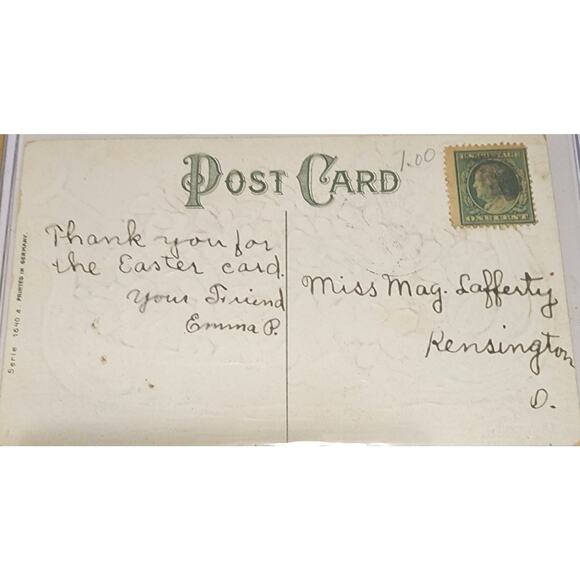 POST CARD
1.00
Thank you for
the Easter card.
Your Friend
Emma P.
Miss Mag. Lafferty
Kensington
O.
Serie 1640 A. PRINTED IN GERMANY.